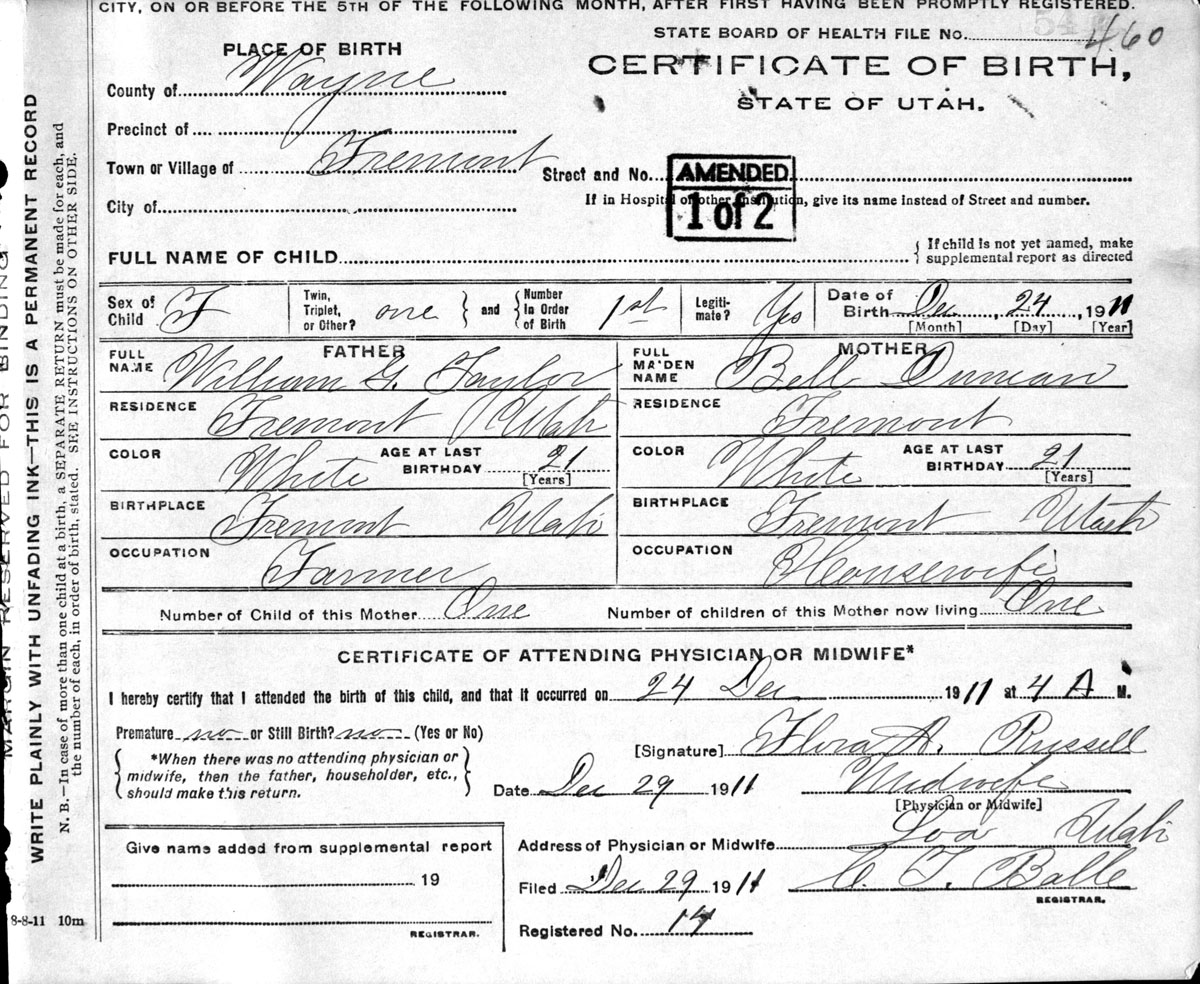 CITY, ON OR BEFORE THE 5TH OF THE FOLLOWING MONTH, AFTER FIRST HAVING BEEN PROMPTLY REGISTERED.
STATE BOARD OF HEALTH FILE No. 460
PLACE OF BIRTH
CERTIFICATE OF BIRTH,
STATE OF UTAH.
County of Wayne
Precinct of
Town or Village of Fremont
Street and No.
AMENDED
1 of 2
City of
If in Hospital or other Institution, give its name instead of Street and number.
FULL NAME OF CHILD
If child is not yet named, make supplemental report as directed
Sex of Child F
Twin, Triplet, or Other? one and Number In Order of Birth 1st
Legitimate? Yes
Date of Birth Dec 24, 1911
[Month] [Day] [Year]
FATHER
FULL NAME William G. Taylor
RESIDENCE Fremont Utah
COLOR White AGE AT LAST BIRTHDAY 21
[Years]
BIRTHPLACE Fremont Utah
OCCUPATION Farmer
MOTHER
FULL MAIDEN NAME Bell Duncan
RESIDENCE Fremont
COLOR White AGE AT LAST BIRTHDAY 21
[Years]
BIRTHPLACE Fremont Utah
OCCUPATION Housewife
Number of Child of this Mother One Number of children of this Mother now living One
CERTIFICATE OF ATTENDING PHYSICIAN OR MIDWIFE*
I hereby certify that I attended the birth of this child, and that it occurred on 24 Dec 1911 at 4 A M.
Premature no or Still Birth? no (Yes or No)
[Signature] Flora A. Russell
*When there was no attending physician or
midwife, then the father, householder, etc.,
should make this return.
Date Dec 29 1911 Midwife
[Physician or Midwife]
Address of Physician or Midwife Loa Utah
Filed Dec 29 1911 REGISTRAR.
Registered No. 14
Give name added from supplemental report
19
REGISTRAR.
8-8-11 10m
MARGIN RESERVED FOR BINDING
WRITE PLAINLY WITH UNFADING INK—THIS IS A PERMANENT RECORD
N. B.—In case of more than one child at a birth, a SEPARATE RETURN must be made for each, and
the number of each, in order of birth, stated. SEE INSTRUCTIONS ON OTHER SIDE.